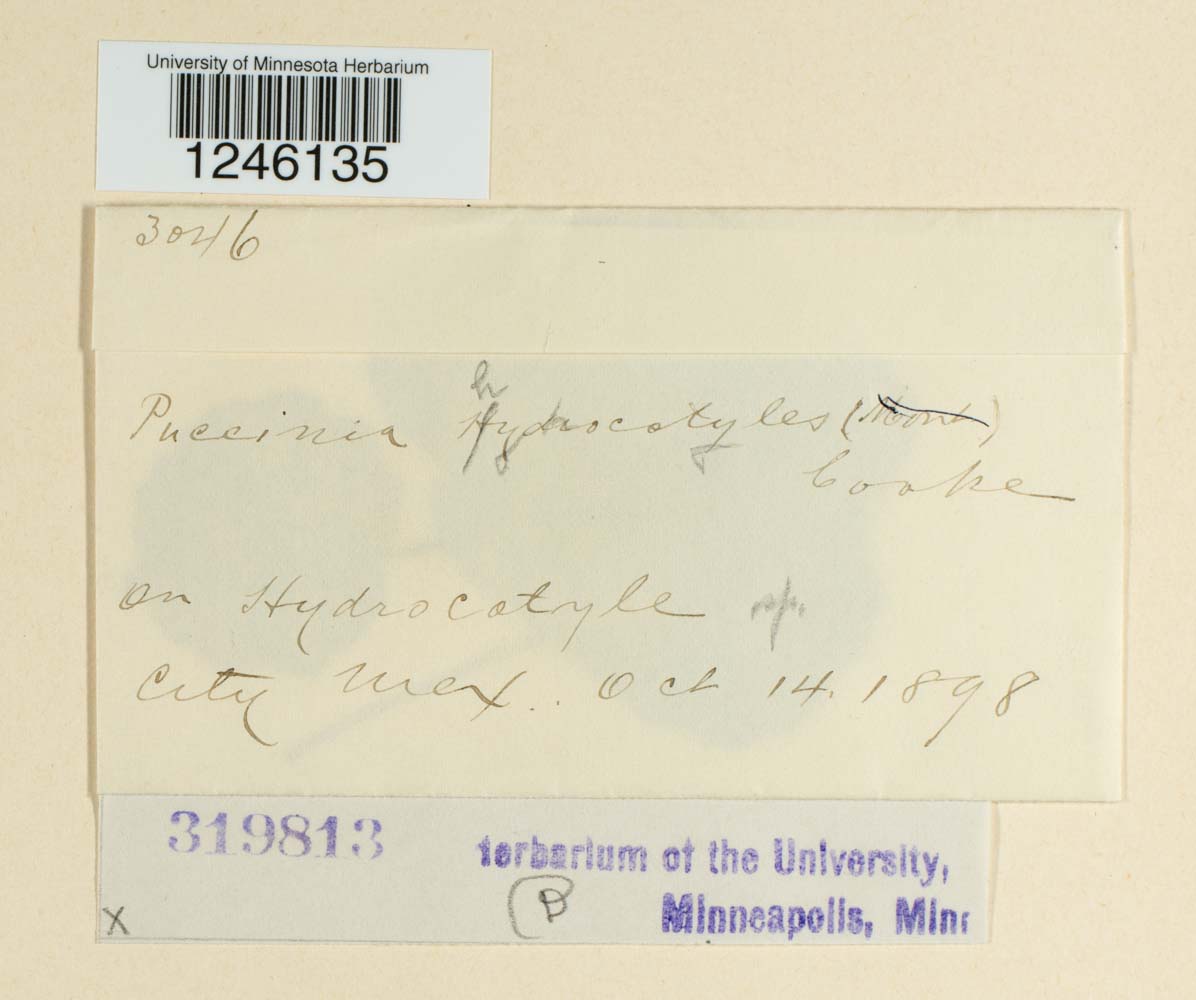 University of Minnesota Herbarium
1246135
3046
h
Puccinia Hydrocotyles (Mont)
Cooke
on Hydrocotyle sp.
City Mex.. Oct 14. 1898
319813
Herbarium of the University,
B
Minneapolis, Minn
X